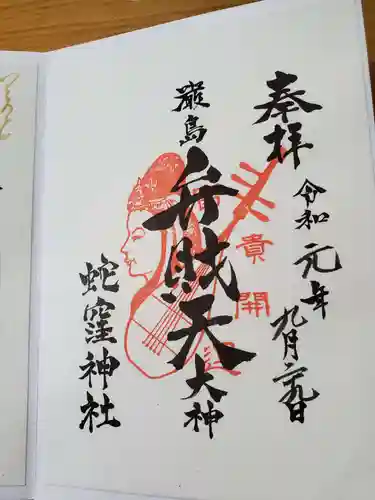 奉拝
令和元年九月二九日
厳島
弁財天
大神
蛇窪神社